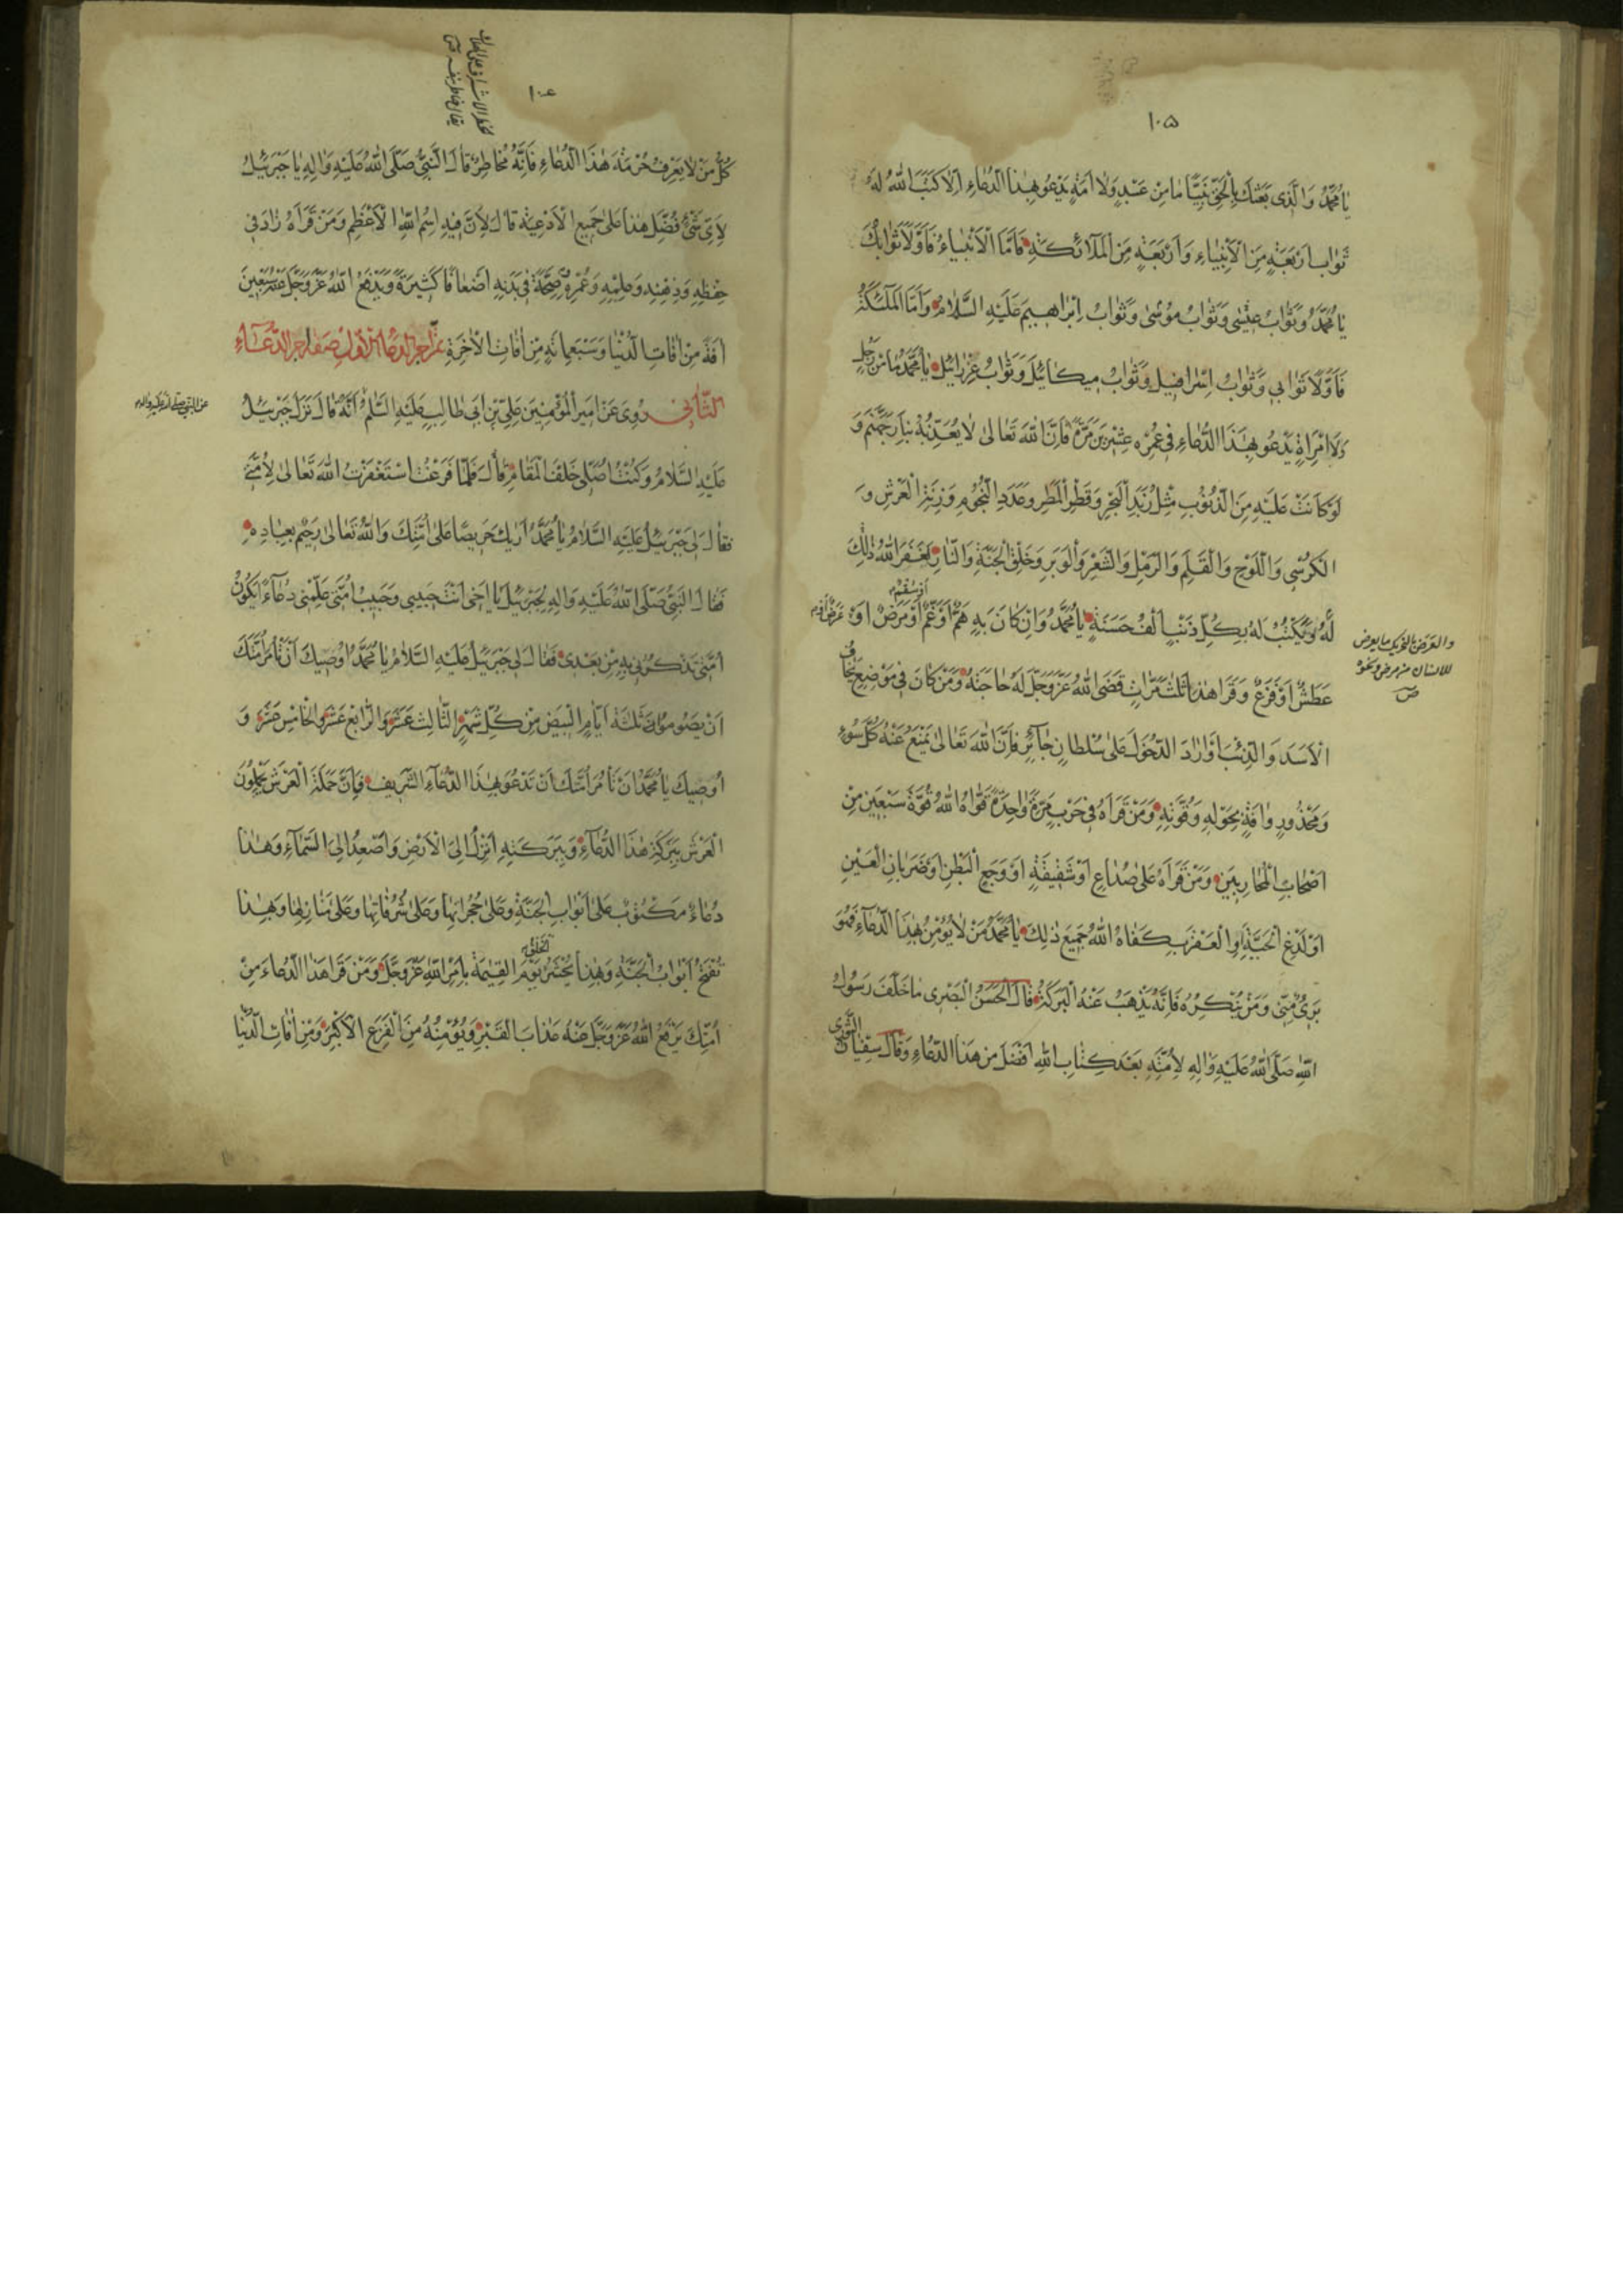 ١٠٥
يَا مُحَمَّدُ وَالَّذِى بَعَثَكَ بِالْحَقِّ نَبِيًّا مَا مِنْ عَبْدٍ وَلَا اَمَةٍ يَدْعُو بِهٰذَا الدُّعَاءِ اِلَّا كَتَبَ اللّٰهُ لَهُ
ثَوَابَ اَرْبَعَةٍ مِنَ الْاَنْبِيَاءِ وَاَرْبَعَةٍ مِنَ الْمَلَآئِكَةِ فَاَمَّا الْاَنْبِيَاءُ فَاَوَّلًا ثَوَابُكَ
يَا مُحَمَّدُ وَثَوَابُ عِيْسٰى وَثَوَابُ مُوْسٰى وَثَوَابُ اِبْرَاهِيْمَ عَلَيْهِ السَّلَامُ وَاَمَّا الْمَلٰئِكَةُ
فَاَوَّلًا ثَوَابِى وَثَوَابُ اِسْرَافِيْلَ وَثَوَابُ مِيكَائِيْلَ وَثَوَابُ عِزْرَائِيْلَ يَا مُحَمَّدُ مَا مِنْ رَجُلٍ
وَلَا امْرَاَةٍ يَدْعُو بِهٰذَا الدُّعَاءِ فِى عُمُرِهِ عِشْرِيْنَ مَرَّةً فَاِنَّ اللّٰهَ تَعَالٰى لَا يُعَذِّبُهُ بِنَارِ جَهَنَّمَ وَ
لَوْ كَانَتْ عَلَيْهِ مِنَ الذُّنُوْبِ مِثْلُ زَبَدِ الْبَحْرِ وَقَطْرِ الْمَطَرِ وَعَدَدِ النُّجُوْمِ وَزِنَةِ الْعَرْشِ وَ
الْكُرْسِى وَاللَّوْحِ وَالْقَلَمِ وَالرَّمْلِ وَالشَّعْرِ وَالْوَبَرِ وَخَلْقِ الْجَنَّةِ وَالنَّارِ لَغَفَرَ اللّٰهُ ذٰلِكَ
لَهُ وَيُكْتَبُ لَهُ بِكُلِّ ذَنْبٍ اَلْفُ حَسَنَةٍ يَا مُحَمَّدُ وَاِنْ كَانَ بِهِ هَمٌّ اَوْ غَمٌّ اَوْ سَقَمٌ اَوْ مَرَضٌ اَوْ عَرَضٌ اَوْ
والعرض بالتحريك ما يعرض
للانسان من مرض ونحوه
ص
عَطَشٌ اَوْ فَزَعٌ وَقَرَاَ هٰذَا ثَلٰثَ مَرَّاتٍ قَضَى اللّٰهُ عَزَّ وَجَلَّ لَهُ حَاجَتَهُ وَمَنْ كَانَ فِى مَوْضِعٍ يَخَافُ
الْاَسَدَ وَالذِّئْبَ اَوْ اَرَادَ الدُّخُوْلَ عَلٰى سُلْطَانٍ جَآئِرٍ فَاِنَّ اللّٰهَ تَعَالٰى يَمْنَعُ عَنْهُ كُلَّ سُوْءٍ
وَمَحْذُوْرٍ وَاٰفَةٍ بِحَوْلِهِ وَقُوَّتِهِ وَمَنْ قَرَاَهُ فِى حَرْبٍ مَرَّةً وَاحِدَةً قَوَّاهُ اللّٰهُ قُوَّةَ سَبْعِيْنَ مِنْ
اَصْحَابِ الْمُحَارِبِيْنَ وَمَنْ قَرَاَهُ عَلٰى صُدَاعٍ اَوْ شَقِيْقَةٍ اَوْ وَجَعِ الْبَطْنِ اَوْ ضَرَبَانِ الْعَيْنِ
اَوْ لَدْغِ الْحَيَّةِ اَوِ الْعَقْرَبِ كَفَاهُ اللّٰهُ جَمِيْعَ ذٰلِكَ يَا مُحَمَّدُ مَنْ لَا يُؤْمِنُ بِهٰذَا الدُّعَآءِ فَهُوَ
بَرِىْءٌ مِنِّى وَمَنْ يُنْكِرُهُ فَاِنَّهُ يَذْهَبُ عَنْهُ الْبَرَكَةُ قَالَ الْحَسَنُ الْبَصْرِى مَا خَلَّفَ رَسُوْلُ
اللّٰهِ صَلَّى اللّٰهُ عَلَيْهِ وَاٰلِهِ لِاُمَّتِهِ بَعْدَ كِتَابِ اللّٰهِ اَفْضَلَ مِنْ هٰذَا الدُّعَاءِ وَقَالَ سُفْيَانُ الثَّوْرِى
١٠٦
كُلُّ مَنْ لَا يَعْرِفُ حُرْمَةَ هٰذَا الدُّعَاءِ فَاِنَّهُ مُخَاطِرٌ قَالَ النَّبِىُّ صَلَّى اللّٰهُ عَلَيْهِ وَاٰلِهِ يَا جَبْرَئِيْلُ
لِاَىِّ شَىْءٍ فُضِّلَ هٰذَا عَلٰى جَمِيْعِ الْاَدْعِيَةِ قَالَ لِاَنَّ فِيْهِ اِسْمُ اللّٰهِ الْاَعْظَمِ وَمَنْ قَرَاَهُ زَادَ فِى
حِفْظِهِ وَذِهْنِهِ وَعِلْمِهِ وَعُمْرِهِ وَصِحَّةً فِى بَدَنِهِ اَضْعَافًا كَثِيْرَةً وَيَدْفَعُ اللّٰهُ عَزَّ وَجَلَّ عَنْهُ سَبْعِيْنَ
اٰفَةً مِنْ اٰفَاتِ الدُّنْيَا وَسَبْعَمِائَةٍ مِنْ اٰفَاتِ الْاٰخِرَةِ تَمَّ اَجْرُ الدُّعَآءِ الْاَوَّلِ صِفَةُ اَجْرِ الدُّعَآءِ
الثَّانِى رُوِىَ عَنْ اَمِيْرِ الْمُؤْمِنِيْنَ عَلِىِّ بْنِ اَبِى طَالِبٍ عَلَيْهِ السَّلٰمُ اَنَّهُ قَالَ نَزَلَ جَبْرَئِيْلُ
عن النبى صلى الله عليه واله
عَلَيْهِ السَّلَامُ وَكُنْتُ اُصَلِّى خَلْفَ الْمَقَامِ قَالَ فَلَمَّا فَرَغْتُ اسْتَغْفَرْتُ اللّٰهَ تَعَالٰى لِاُمَّتِى
فَقَالَ لِى جَبْرَئِيْلُ عَلَيْهِ السَّلَامُ يَا مُحَمَّدُ اَرَيٰكَ حَرِيْصًا عَلٰى اُمَّتِكَ وَاللّٰهُ تَعَالٰى رَحِيْمٌ بِعِبَادِهِ
فَقَالَ النَّبِىُّ صَلَّى اللّٰهُ عَلَيْهِ وَاٰلِهِ لِجَبْرَئِيْلَ يَا اَخِى اَنْتَ حَبِيْبِى وَحَبِيْبُ اُمَّتِى عَلِّمْنِى دُعَآءً يَكُوْنُ
اُمَّتِى يَذْكُرُوْنِى بِهِ مِنْ بَعْدِى فَقَالَ لِى جَبْرَئِيْلُ عَلَيْهِ السَّلَامُ يَا مُحَمَّدُ اُوْصِيْكَ اَنْ تَأْمُرَ اُمَّتَكَ
اَنْ يَصُوْمُوْا ثَلٰثَةَ اَيَّامِ الْبِيْضِ مِنْ كُلِّ شَهْرٍ الثَّالِثَ عَشَرَ وَالرَّابِعَ عَشَرَ وَالْخَامِسَ عَشَرَ وَ
اُوْصِيْكَ يَا مُحَمَّدُ اَنْ تَأْمُرَ اُمَّتَكَ اَنْ تَدْعُوَ بِهٰذَا الدُّعَآءِ الشَّرِيْفِ فَاِنَّ حَمَلَةَ الْعَرْشِ يَحْمِلُوْنَ
الْعَرْشَ بِبَرَكَةِ هٰذَا الدُّعَآءِ وَبِبَرَكَتِهِ اَنْزِلُ اِلَى الْاَرْضِ وَاَصْعَدُ اِلَى السَّمَآءِ وَهٰذَا
دُعَاءٌ مَكْتُوْبٌ عَلٰى اَبْوَابِ الْجَنَّةِ وَعَلٰى حُجُرَاتِهَا وَعَلٰى شُرُفَاتِهَا وَعَلٰى مَنَازِلِهَا وَبِهٰذَا
تُفْتَحُ اَبْوَابُ الْجَنَّةِ وَبِهٰذَا يُحْشَرُ الْخَلْقُ يَوْمَ الْقِيٰمَةِ بِاَمْرِ اللّٰهِ عَزَّ وَجَلَّ وَمَنْ قَرَاَ هٰذَا الدُّعَاءَ مِنْ
اُمَّتِكَ يَرْفَعُ اللّٰهُ عَزَّ وَجَلَّ عَنْهُ عَذَابَ الْقَبْرِ وَيُؤْمِنُهُ مِنَ الْفَزَعِ الْاَكْبَرِ وَمِنْ اٰفَاتِ الدُّنْيَا